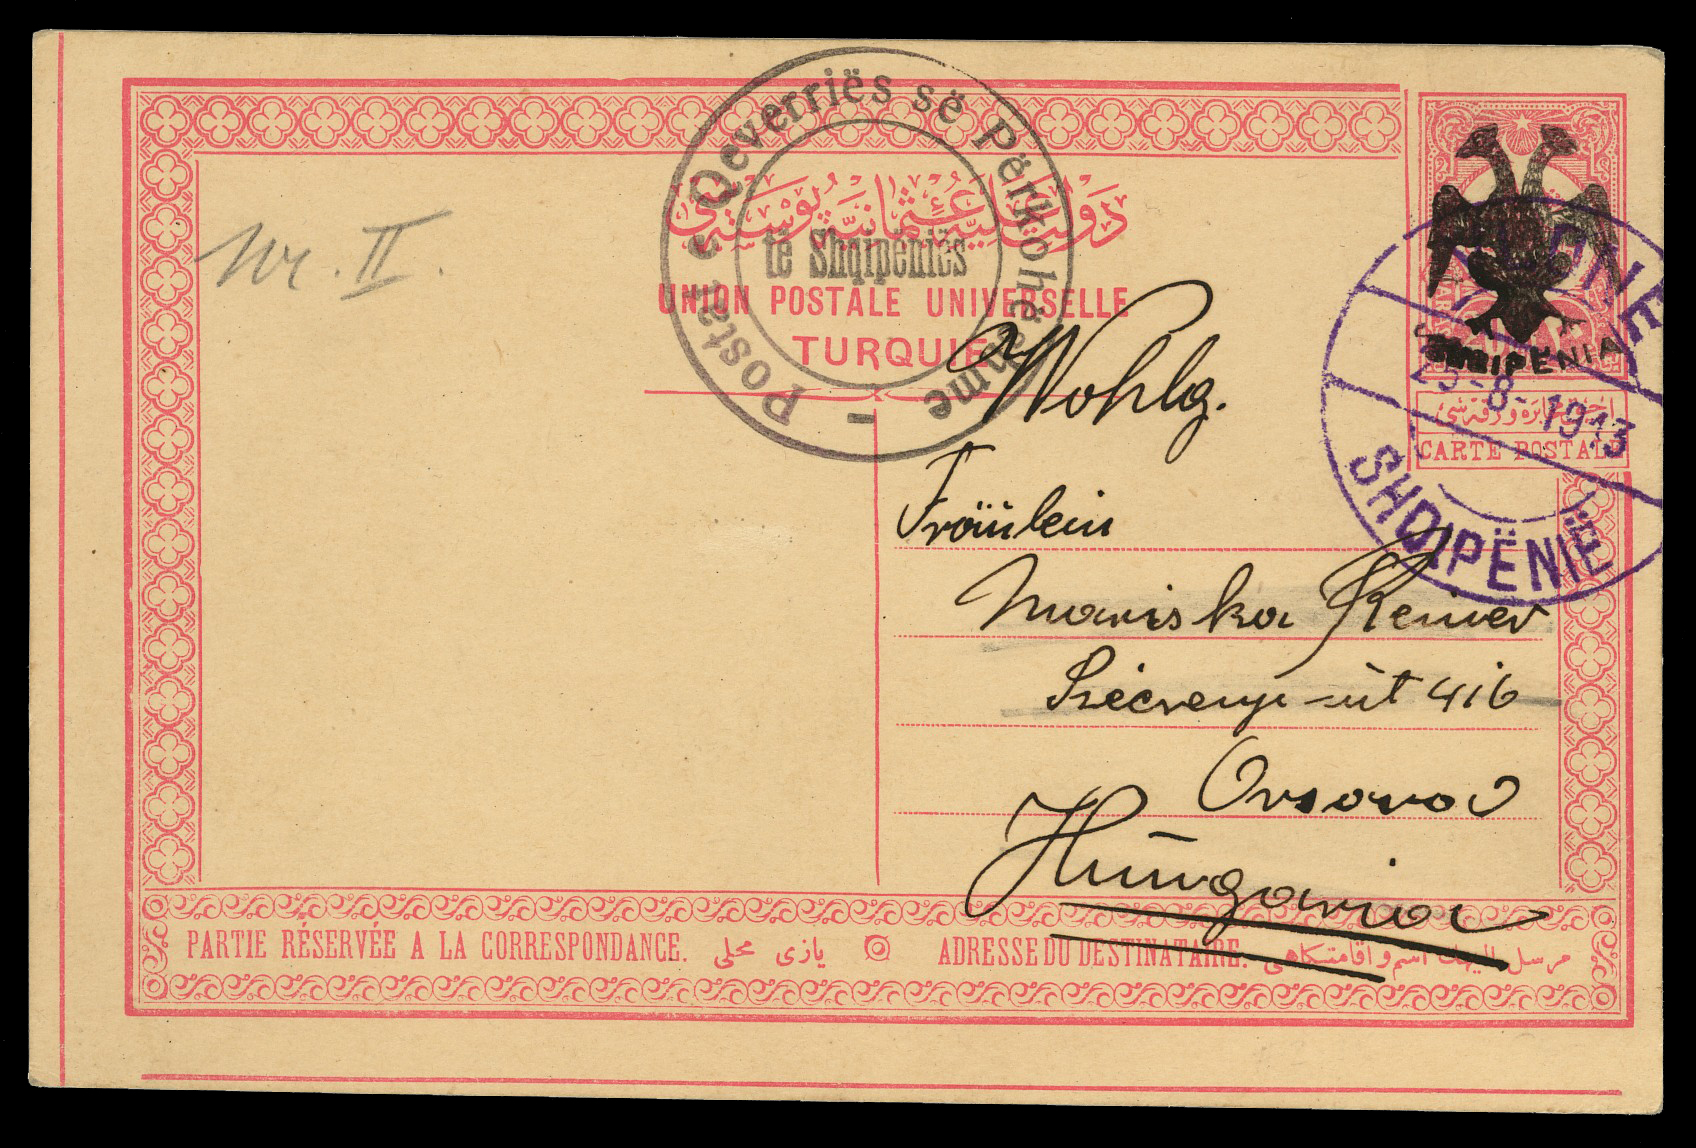 Postat e Qeverriës së Përkohëshme –
të Shqipëniës
دولت علیۀ عثمانیه پوسته‌سی
UNION POSTALE UNIVERSELLE
TURQUIE
Nr. II.
SHQIPËNIA
VLONË
25-8-1913
SHQIPËNIË
CARTE POSTALE
Wohlg.
Fräulein
Mariska Reiner
Szécsenyi út 416
Orsova
Hungaria
PARTIE RÉSERVÉE A LA CORRESPONDANCE. یازی محلی
ADRESSE DU DESTINATAIRE. مرسل الیهك اسم و اقامتكاهی